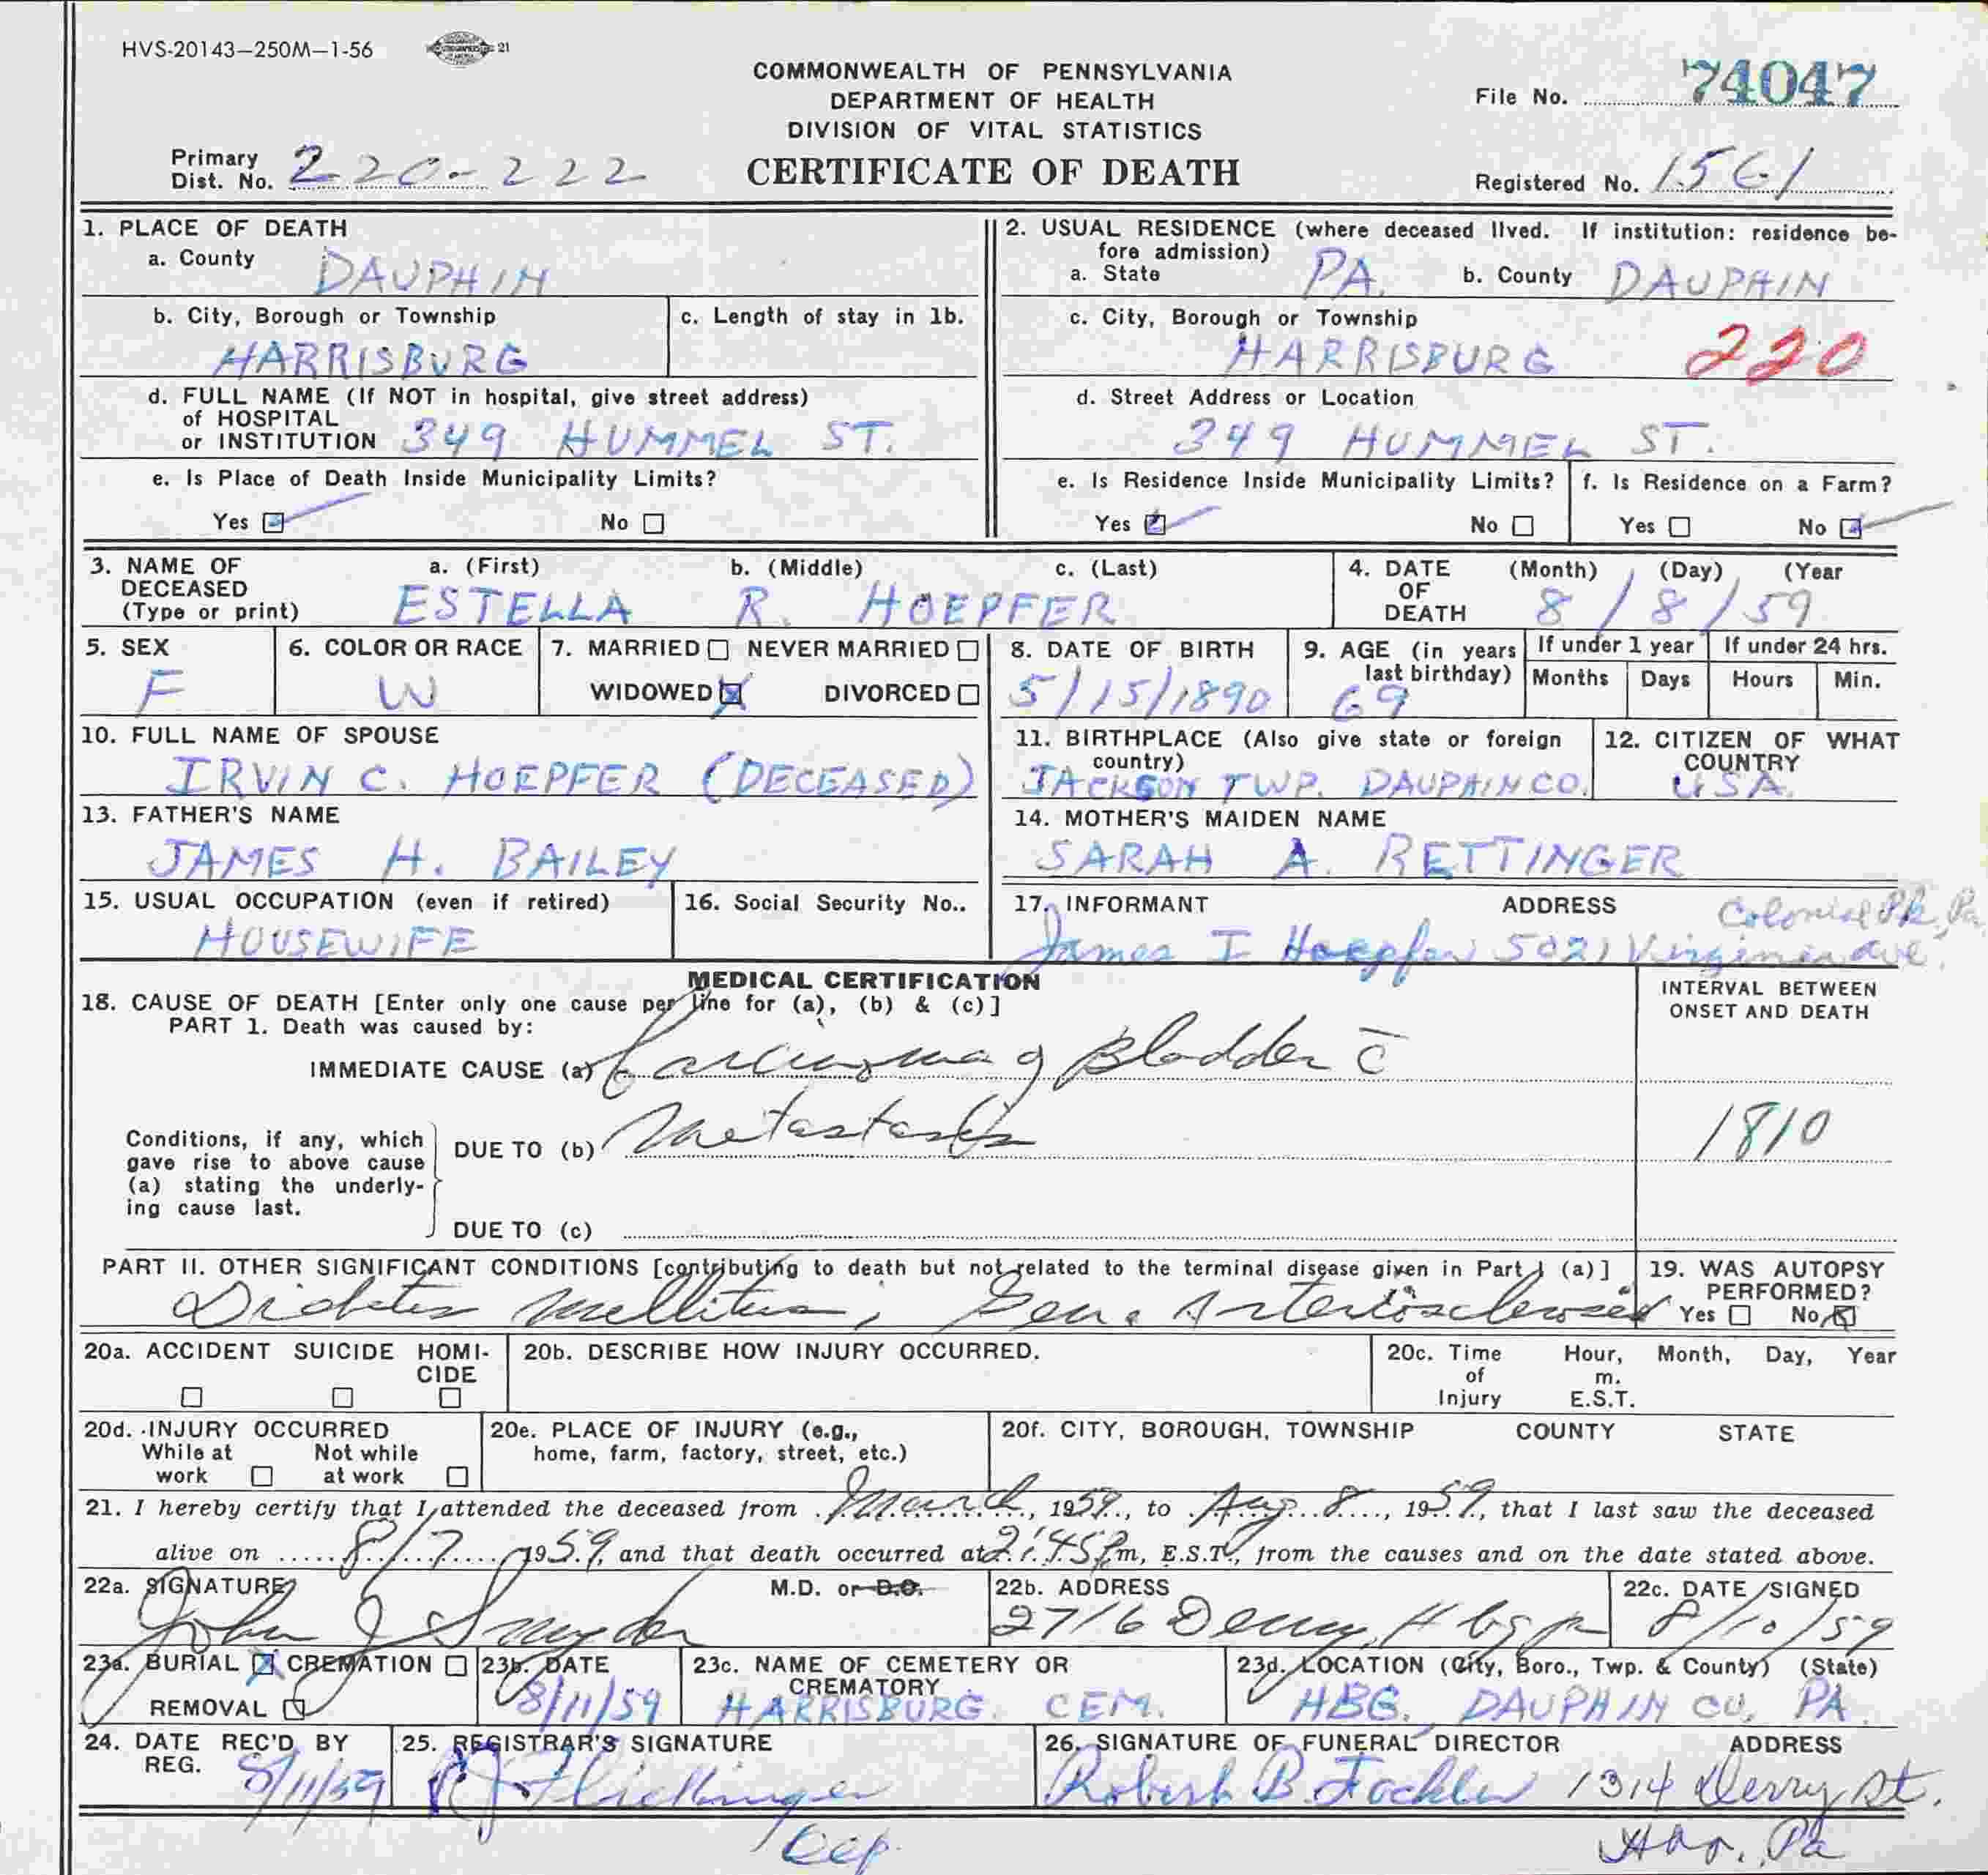 HVS-20143—250M—1-56 21
COMMONWEALTH OF PENNSYLVANIA
DEPARTMENT OF HEALTH
DIVISION OF VITAL STATISTICS
CERTIFICATE OF DEATH
File No. 74047
Primary
Dist. No. 220-222
Registered No. 1561
1. PLACE OF DEATH
a. County DAUPHIN
b. City, Borough or Township HARRISBURG
c. Length of stay in 1b.
d. FULL NAME (If NOT in hospital, give street address)
of HOSPITAL
or INSTITUTION 349 HUMMEL ST.
e. Is Place of Death Inside Municipality Limits?
Yes No
2. USUAL RESIDENCE (where deceased lived. If institution: residence be-
fore admission)
a. State PA. b. County DAUPHIN
c. City, Borough or Township
HARRISBURG 220
d. Street Address or Location
349 HUMMEL ST.
e. Is Residence Inside Municipality Limits? f. Is Residence on a Farm?
Yes No Yes No
3. NAME OF DECEASED (Type or print)
a. (First) b. (Middle) c. (Last)
ESTELLA R. HOEPFER
4. DATE OF DEATH (Month) (Day) (Year
8/8/59
5. SEX
F
6. COLOR OR RACE
W
7. MARRIED NEVER MARRIED
WIDOWED X DIVORCED
8. DATE OF BIRTH
5/15/1890
9. AGE (in years
last birthday)
69
If under 1 year If under 24 hrs.
Months Days Hours Min.
10. FULL NAME OF SPOUSE
IRVIN C. HOEPFER (DECEASED)
11. BIRTHPLACE (Also give state or foreign
country)
JACKSON TWP. DAUPHIN CO.
12. CITIZEN OF WHAT
COUNTRY
USA.
13. FATHER'S NAME
JAMES H. BAILEY
14. MOTHER'S MAIDEN NAME
SARAH A. RETTINGER
15. USUAL OCCUPATION (even if retired)
HOUSEWIFE
16. Social Security No..
17. INFORMANT ADDRESS Colonial Pk, Pa
James I Hoepfer 5021 Virginia ave.
MEDICAL CERTIFICATION
18. CAUSE OF DEATH [Enter only one cause per line for (a), (b) & (c)]
PART 1. Death was caused by:
IMMEDIATE CAUSE (a) Carcinoma of Bladder c̄
Conditions, if any, which
gave rise to above cause
(a) stating the underly-
ing cause last.
DUE TO (b) Metastasis
DUE TO (c)
INTERVAL BETWEEN
ONSET AND DEATH
1810
PART II. OTHER SIGNIFICANT CONDITIONS [contributing to death but not related to the terminal disease given in Part I (a)]
Diabetes Mellitus, Gen. Arteriosclerosis
19. WAS AUTOPSY
PERFORMED?
Yes No X
20a. ACCIDENT SUICIDE HOMI-
CIDE
20b. DESCRIBE HOW INJURY OCCURRED.
20c. Time of Injury Hour, Month, Day, Year
m.
E.S.T.
20d. INJURY OCCURRED
While at work Not while at work
20e. PLACE OF INJURY (e.g.,
home, farm, factory, street, etc.)
20f. CITY, BOROUGH, TOWNSHIP COUNTY STATE
21. I hereby certify that I attended the deceased from March, 1959, to Aug 8, 1959, that I last saw the deceased
alive on 8/7 1959, and that death occurred at 2:45 Pm, E.S.T., from the causes and on the date stated above.
22a. SIGNATURE M.D. or D.O.
John J Snyder
22b. ADDRESS
2716 Derry, Hbg Pa
22c. DATE SIGNED
8/10/59
23a. BURIAL X CREMATION
REMOVAL
23b. DATE
8/11/59
23c. NAME OF CEMETERY OR
CREMATORY
HARRISBURG CEM.
23d. LOCATION (City, Boro., Twp. & County) (State)
HBG. DAUPHIN CO. PA
24. DATE REC'D BY
REG. 8/11/59
25. REGISTRAR'S SIGNATURE
Dep.
26. SIGNATURE OF FUNERAL DIRECTOR ADDRESS
Robert B. Fackler 1314 Derry St.
Hbg., Pa